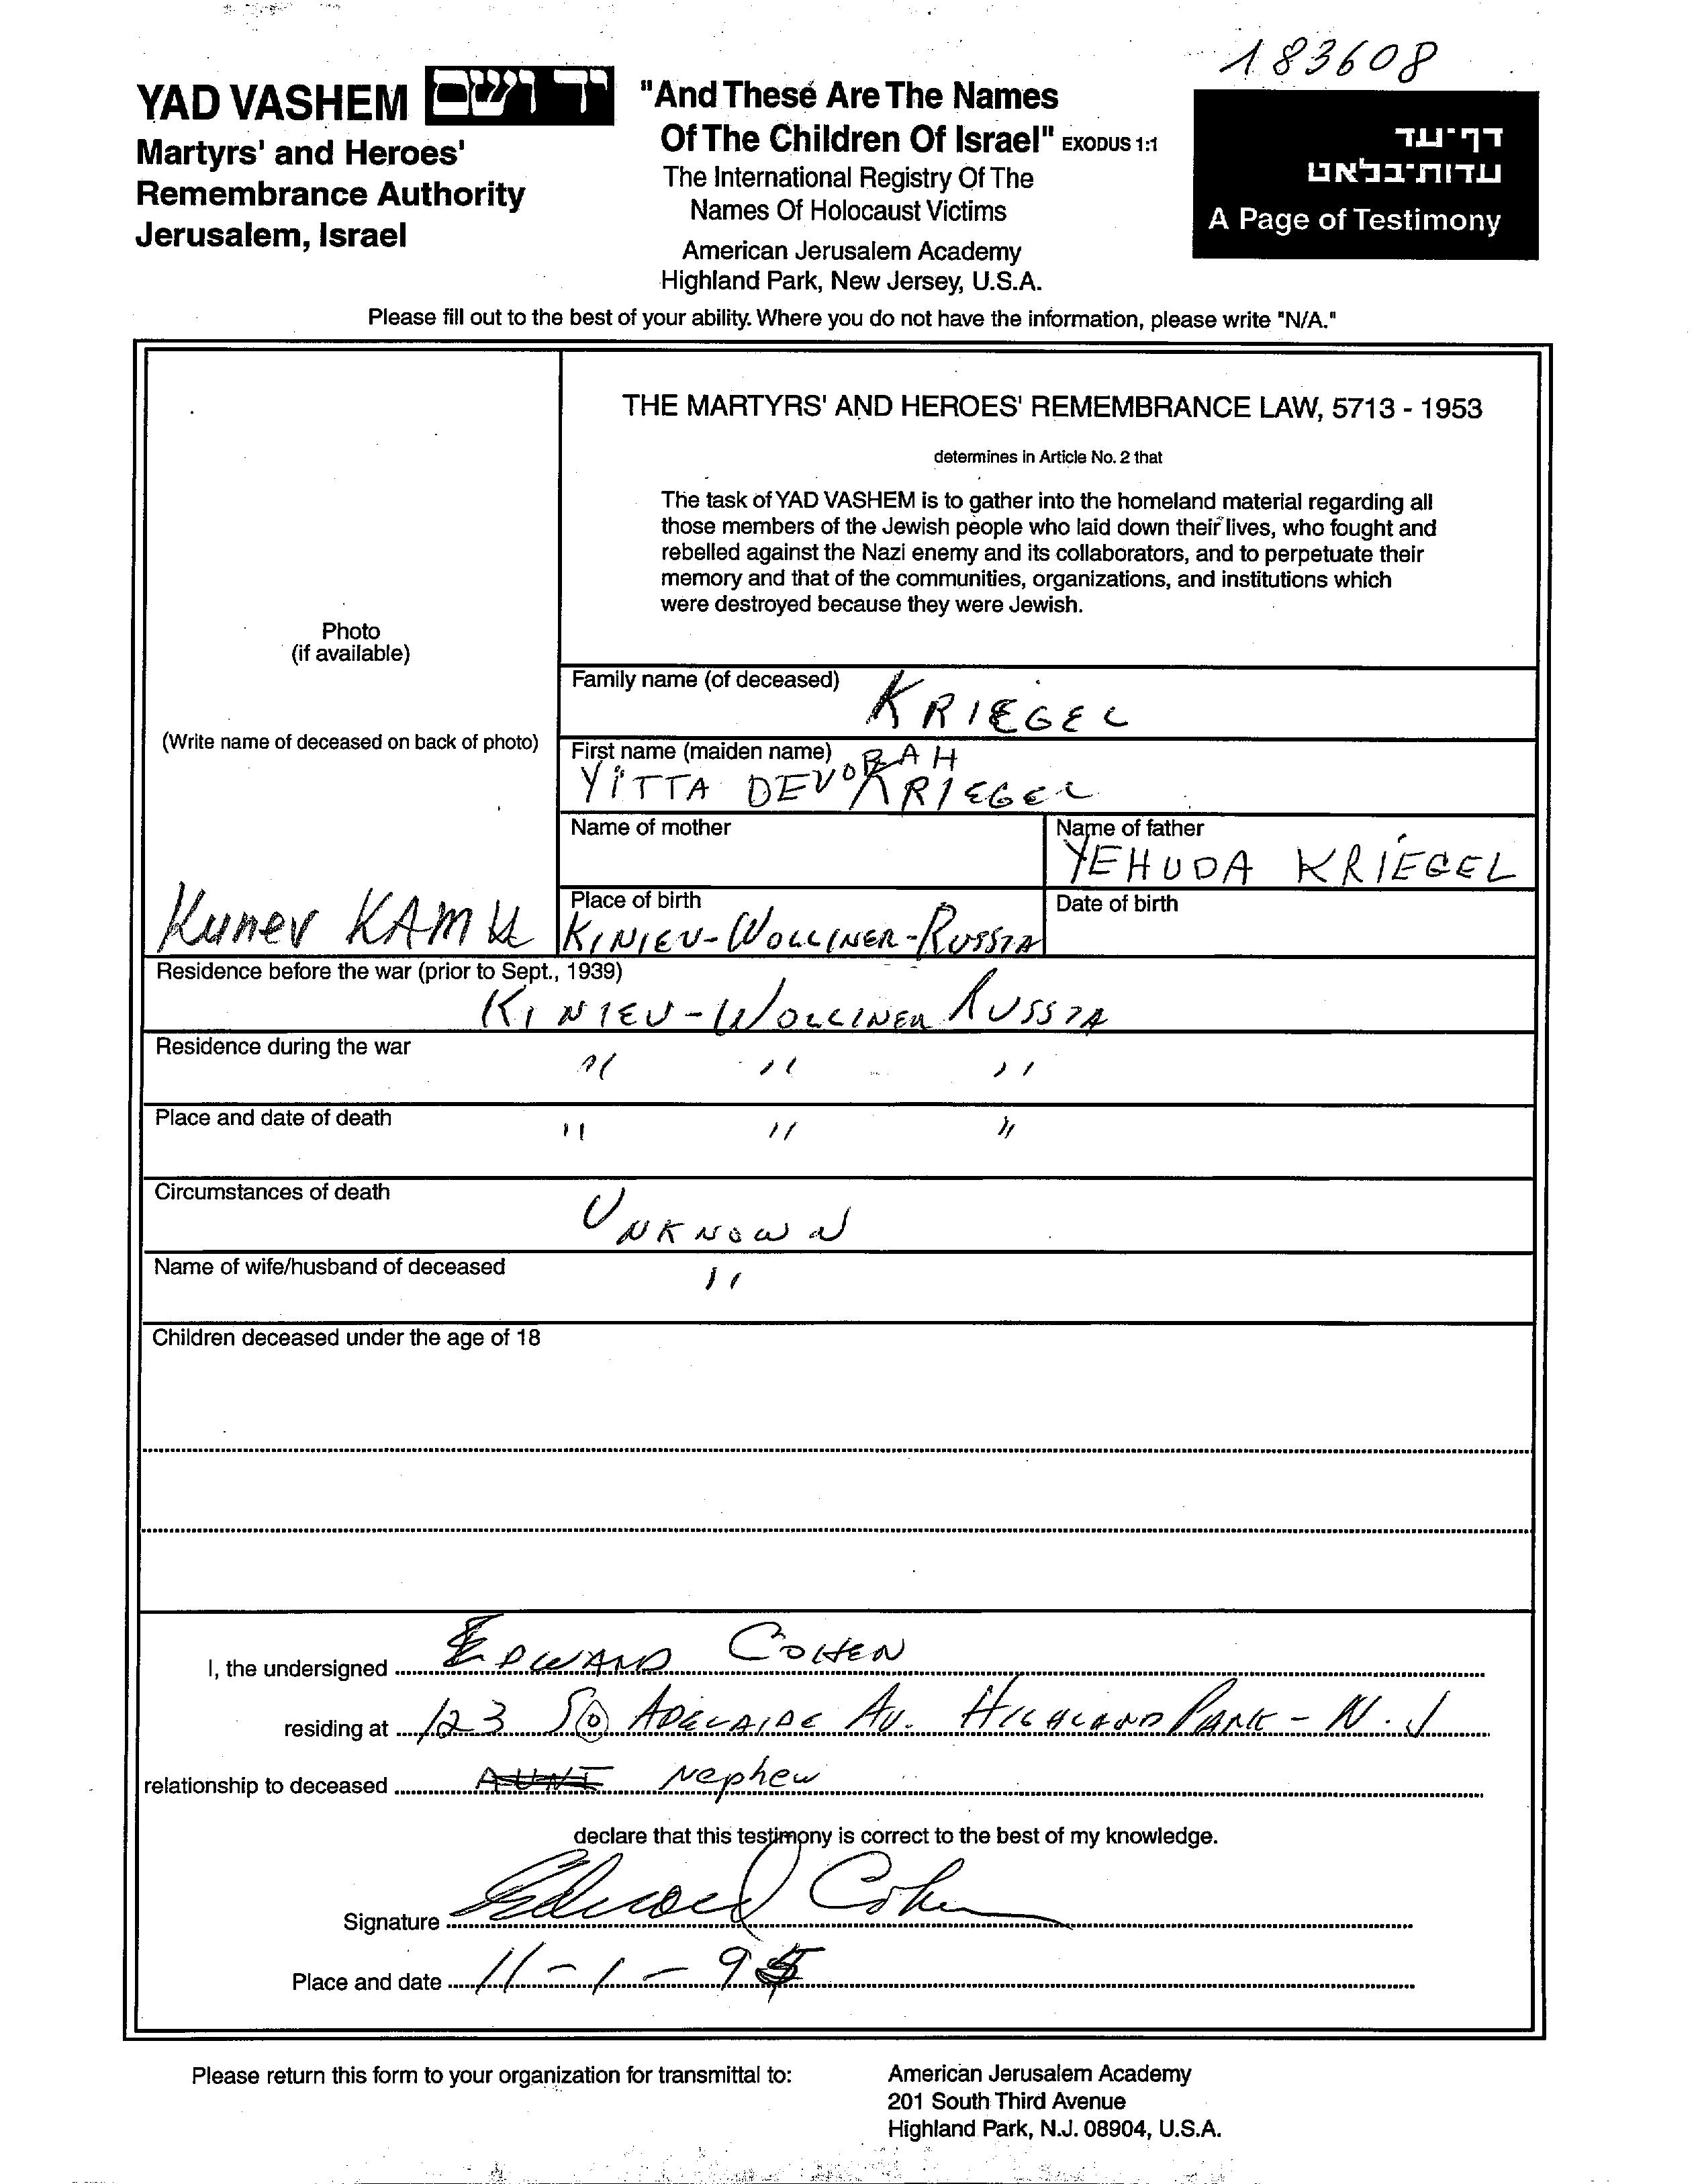 183608
YAD VASHEM יד ושם
Martyrs' and Heroes'
Remembrance Authority
Jerusalem, Israel
"And These Are The Names
Of The Children Of Israel" EXODUS 1:1
The International Registry Of The
Names Of Holocaust Victims
American Jerusalem Academy
Highland Park, New Jersey, U.S.A.
דף-עד
עדות-בלאט
A Page of Testimony
Please fill out to the best of your ability. Where you do not have the information, please write "N/A."
THE MARTYRS' AND HEROES' REMEMBRANCE LAW, 5713 - 1953
determines in Article No. 2 that
The task of YAD VASHEM is to gather into the homeland material regarding all
those members of the Jewish people who laid down their lives, who fought and
rebelled against the Nazi enemy and its collaborators, and to perpetuate their
memory and that of the communities, organizations, and institutions which
were destroyed because they were Jewish.
Photo
(if available)
(Write name of deceased on back of photo)
Family name (of deceased) KRIEGEL
First name (maiden name)
YITTA DEVORAH KRIEGEL
Name of mother
Name of father
YEHUDA KRIEGEL
Place of birth
KINIEV-WOLLINER-RUSSIA
Date of birth
Residence before the war (prior to Sept., 1939)
KINIEV-WOLLINER RUSSIA
Residence during the war " " "
Place and date of death " " "
Circumstances of death UNKNOWN
Name of wife/husband of deceased "
Children deceased under the age of 18
I, the undersigned EDWARD COHEN
residing at 123 SO ADELAIDE AV. HIGHLAND PARK - N.J
relationship to deceased AUNT Nephew
declare that this testimony is correct to the best of my knowledge.
Signature Edward Cohen
Place and date 11-1-95
Please return this form to your organization for transmittal to:
American Jerusalem Academy
201 South Third Avenue
Highland Park, N.J. 08904, U.S.A.